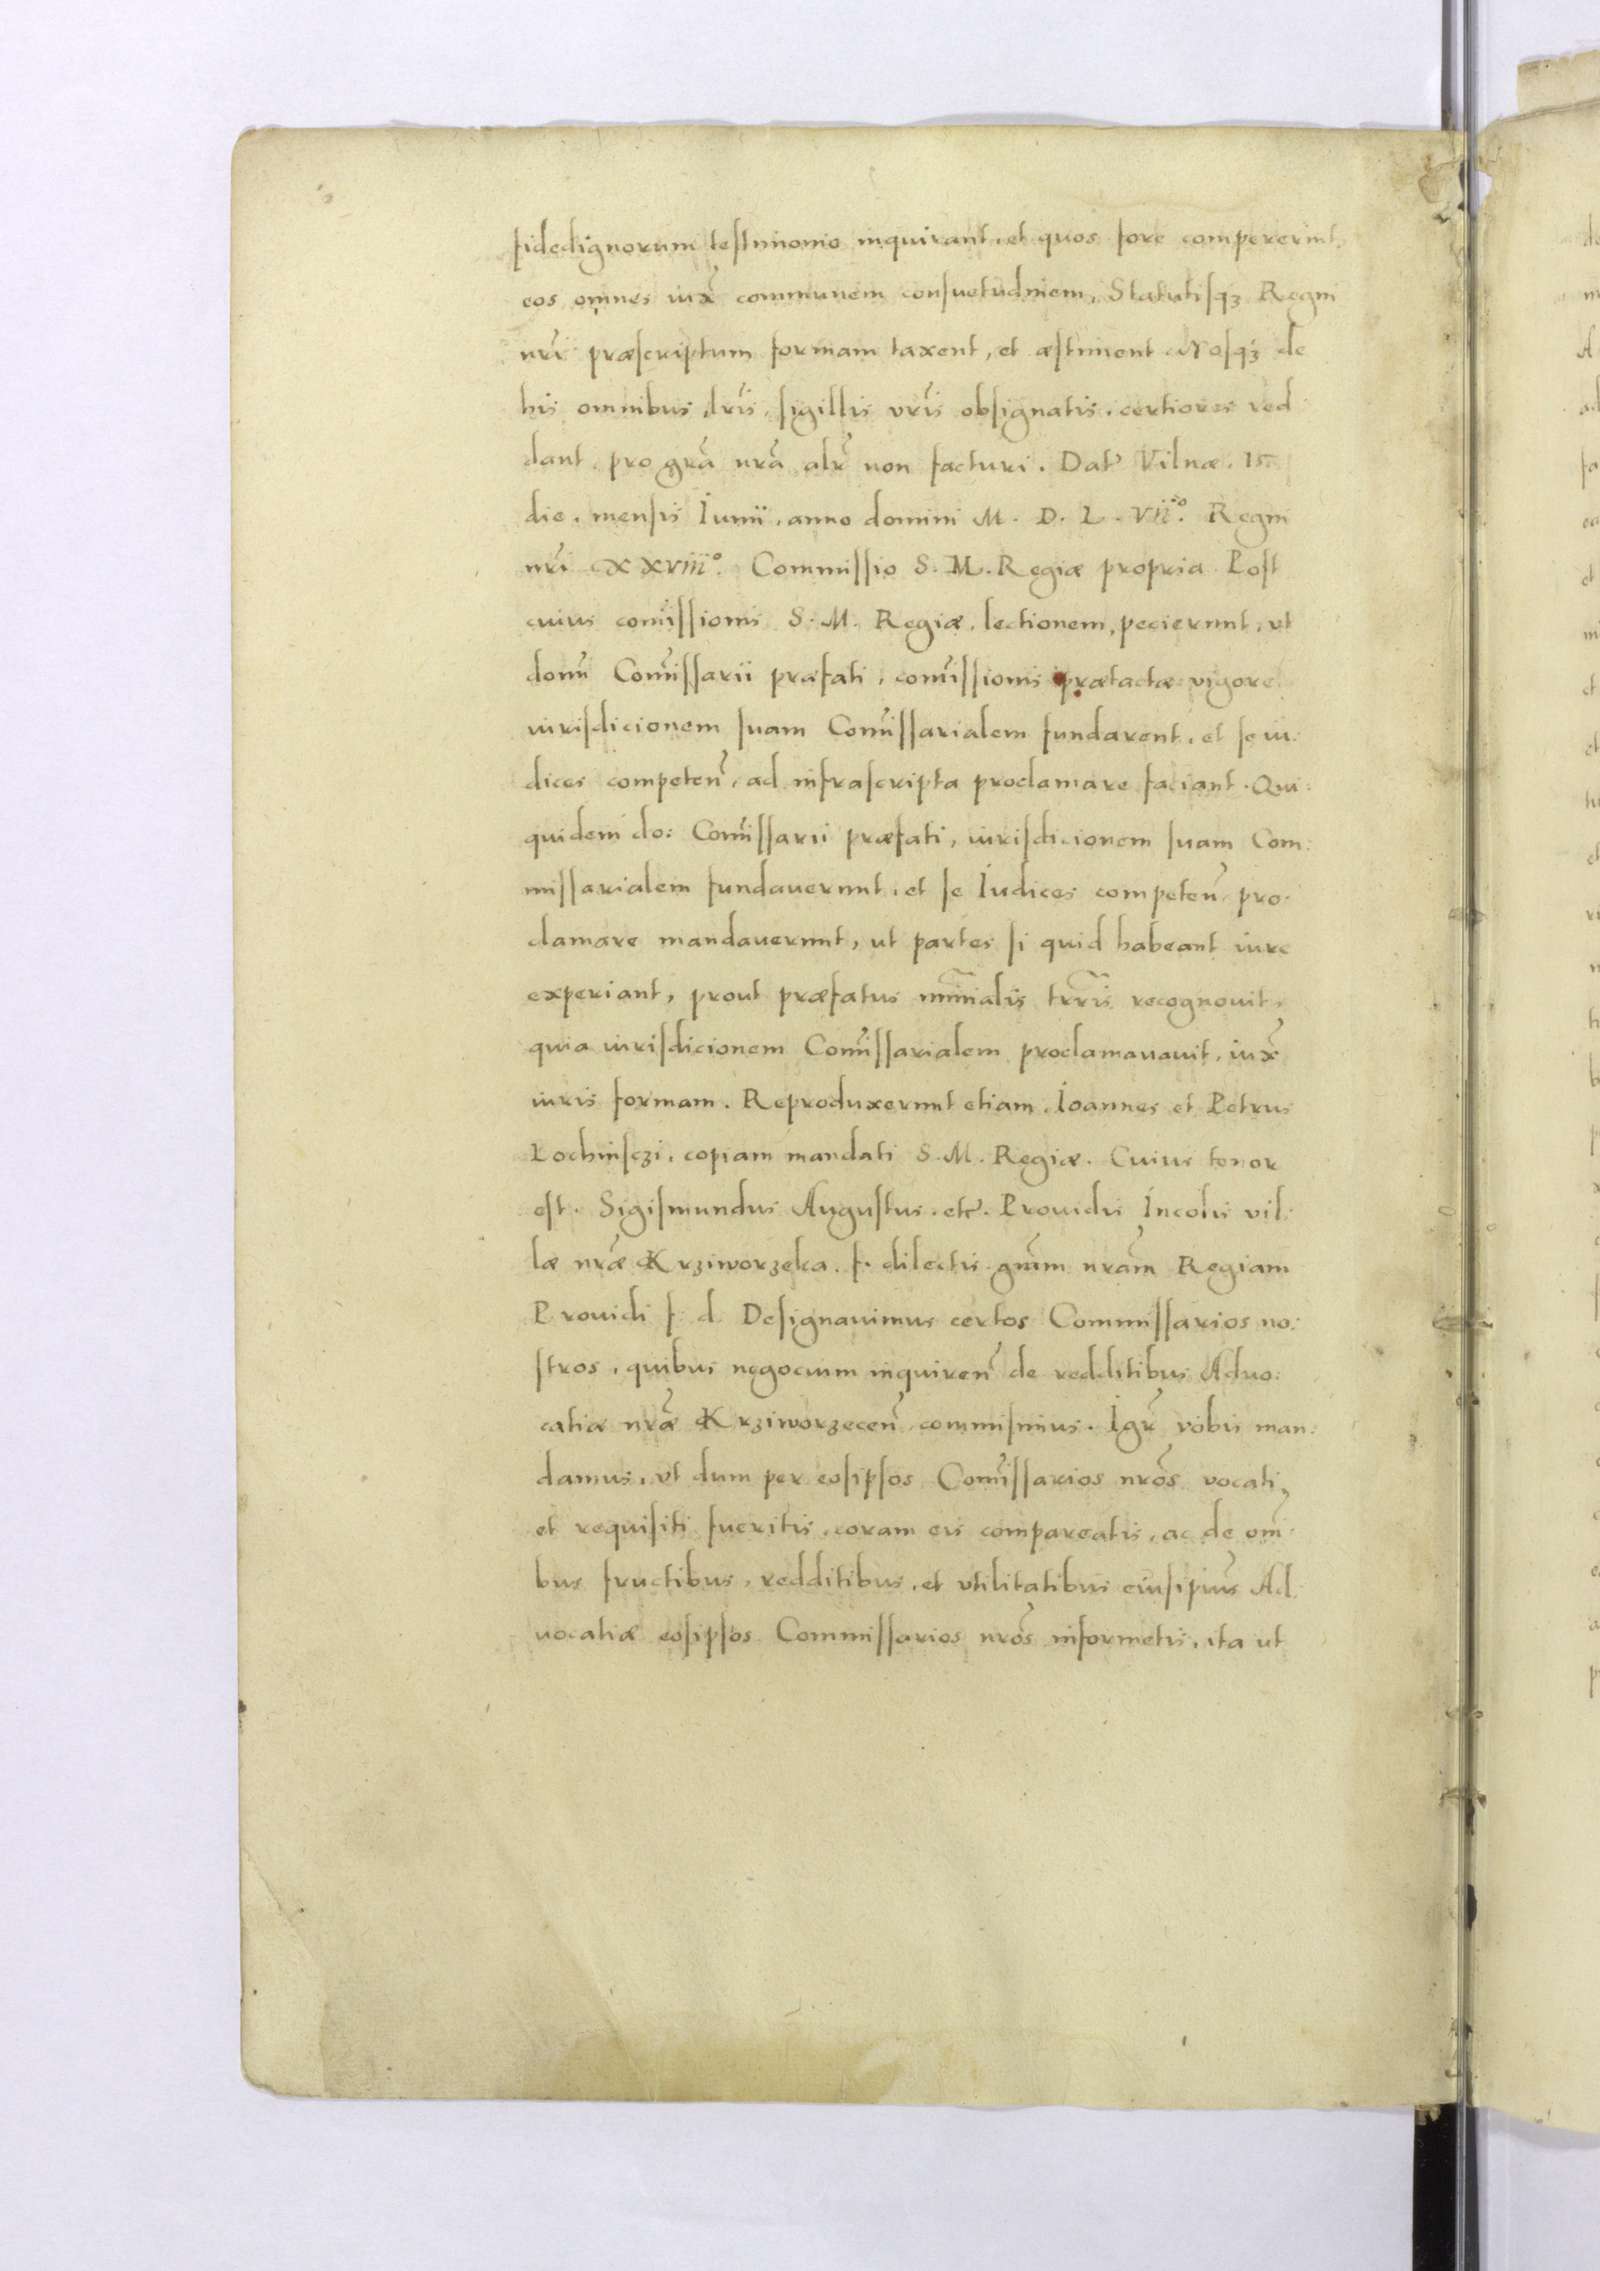 fidedignorum testimonio inquirant, et quos fore compererint,
eos omnes iux̃ communem consuetudinem, Statutisqꝫ Regni
nr̃i præscriptum formam taxent, et æstiment Nosqꝫ de
his omnibus, lr̃is, sigillis vr̃is obsignatis, certiores red
dant, pro gr̃a nr̃a alr̃ non facturi. Dat̃ Vilnæ. 15
die, mensis Iunii, anno domini M. D. L. VII°. Regni
nr̃i XXVIII°. Commissio S. M. Regiæ propria Post
cuius com̃issionis S. M. Regiæ, lectionem, pecierunt, vt
domĩ Com̃issarii præfati, com̃issionis prætactæ vigore
iurisdicionem suam Com̃issarialem fundarent, et se iu:
dices competeñ, ad infrascripta proclamare faciant. Qui:
quidem do: Com̃issarii præfati, iurisdicionem suam Com:
missarialem fundaverunt, et se Iudices competeñ pro:
clamare mandaverunt, ut partes si quid habeant iure
experiant, prout præfatus mi͠nialis trr̃is recognovit,
quia iurisdicionem Com̃issarialem proclamavavit, iux̃
iuris formam. Reproduxerunt etiam, Ioannes et Petrus
Lochinsczi, copiam mandati S. M. Regiæ. Cuius tenor
est. Sigismundus Augustus. etc̃. Providis Incolis vil:
læ nr̃æ Krziworzeka. f. dilectis gr̃am nr̃am Regiam
Providi f. d. Designavimus certos Commissarios no:
stros, quibus negocium inquireñ de redditibus Advo:
catiæ nr̃æ Krziworzeceñ commisimus. Igr̃ vobis man:
damus, vt dum per eosipsos Com̃issarios nr̃os vocati,
et requisiti fueritis, coram eis compareatis, ac de om̃:
bus fructibus, redditibus, et vtilitatibus eiusipius Ad:
vocatiæ eosipsos Commissarios nr̃os informetis, ita ut